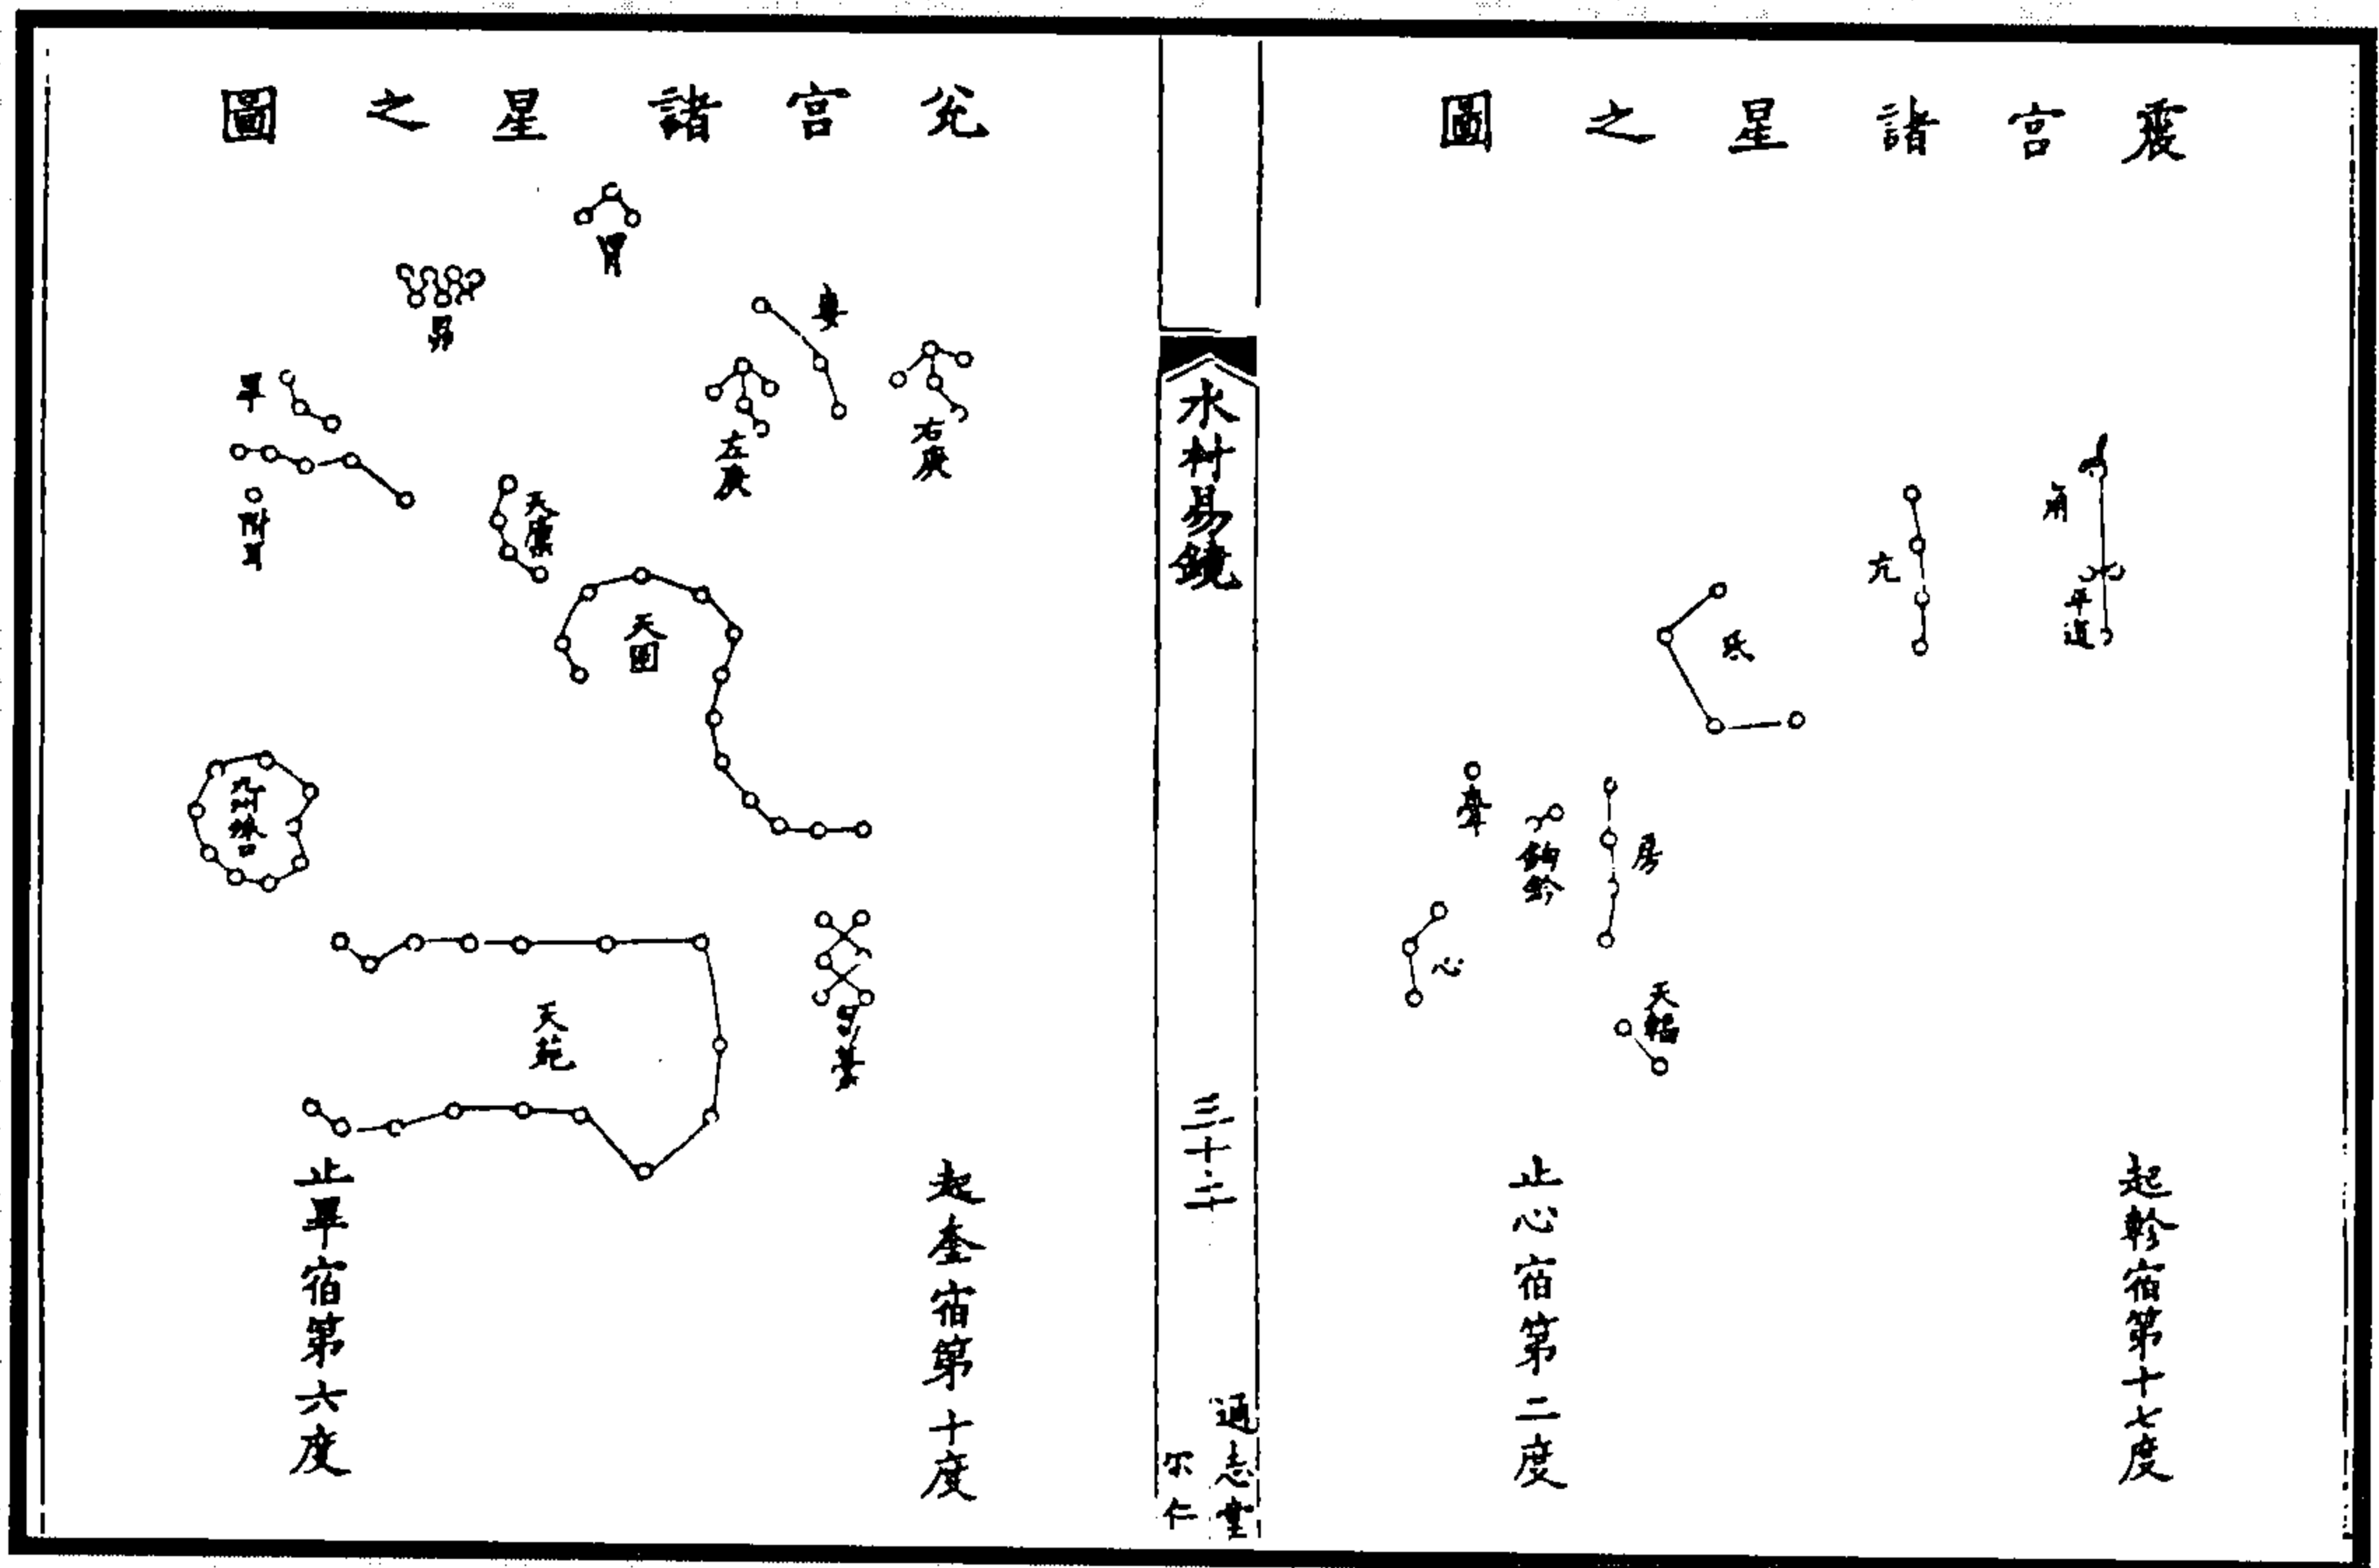 震宮諸星之圖
角
平道
亢
氐
房
鈎鈐
心
天輻
起軫宿第十七度
止心宿第二度
水村易鏡
三十三
通志堂
尔仁
兊宮諸星之圖
右庚
婁
左庚
胃
昴
畢
附耳
天廩
天囷
九州殊口
天苑
起奎宿第十度
止畢宿第六度